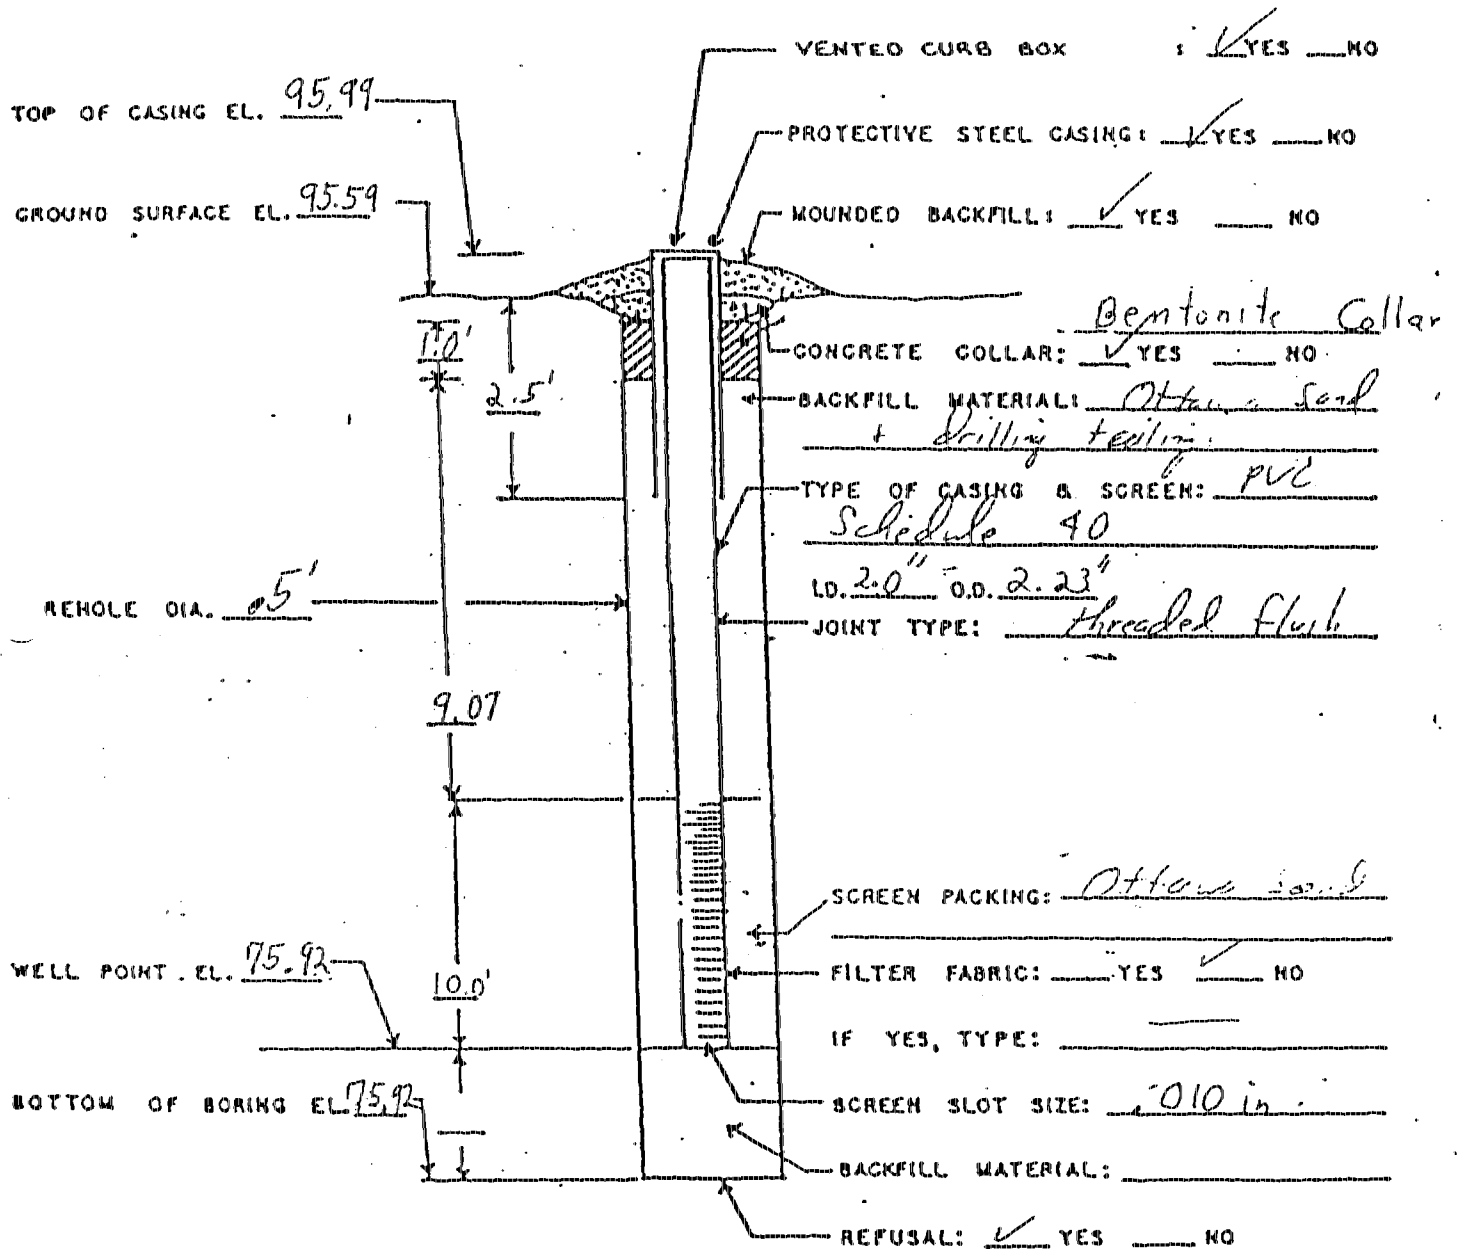 VENTED CURB BOX : ✓ YES ___ NO
TOP OF CASING EL. 95.99
PROTECTIVE STEEL CASING: ✓ YES ___ NO
GROUND SURFACE EL. 95.59
MOUNDED BACKFILL: ✓ YES ___ NO
Bentonite Collar
1.0'
CONCRETE COLLAR: ✓ YES ___ NO
2.5'
BACKFILL MATERIAL: Ottawa Sand
+ drilling tailing.
TYPE OF CASING & SCREEN: PVC
Schedule 40
I.D. 2.0" O.D. 2.23"
REHOLE DIA. .5'
JOINT TYPE: threaded flush
9.07
SCREEN PACKING: Ottawa sand
WELL POINT . EL. 75.92
10.0'
FILTER FABRIC: ___ YES ✓ NO
IF YES, TYPE: —
BOTTOM OF BORING EL. 75.92
SCREEN SLOT SIZE: .010 in.
BACKFILL MATERIAL:
REFUSAL: ✓ YES ___ NO